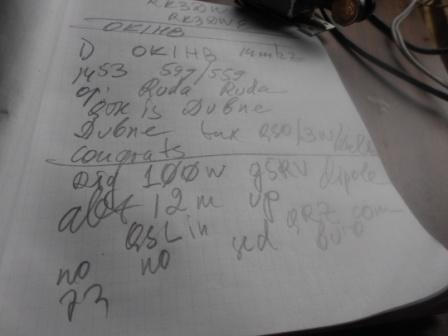 RK3DW
RK3DW
OK1HB
D OK1HB 14mhz
1453 599/559
op: Ruda Ruda
QTH is Dubne
Dubne tnx QSO/3W/
congrats
rig 100w G5RV dipole
abt 12 m up
QSL in QRZ com
no no buro
73